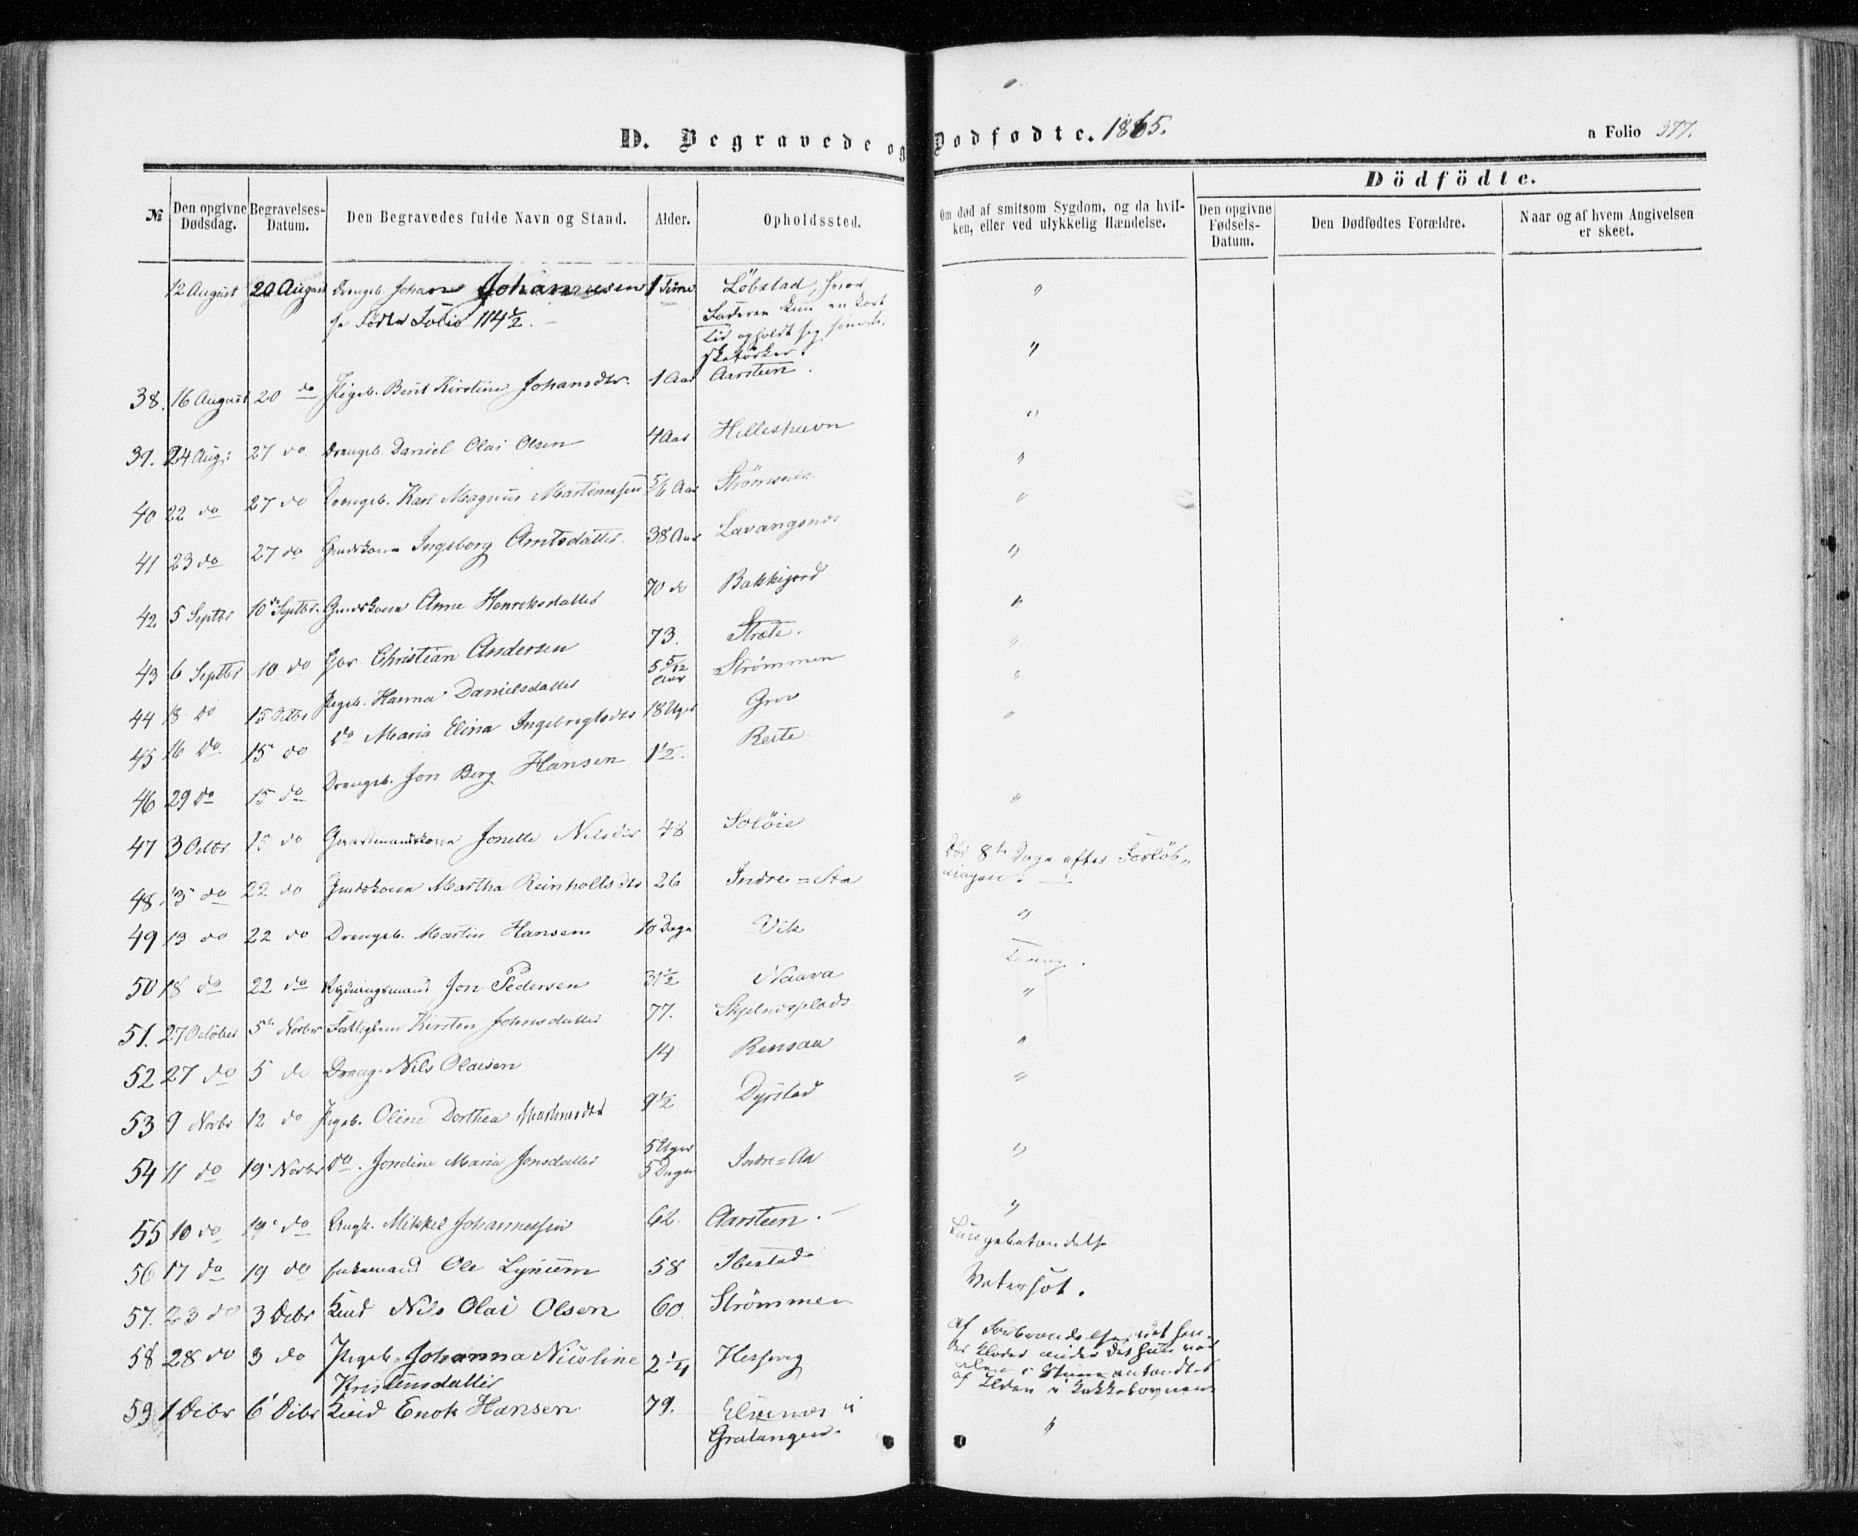 D. Begravede og Dødfødte. 1865.
a Folio 377.
Dödfödte.
№ Den opgivne Dødsdag. Begravelses-Datum. Den Begravedes fulde Navn og Stand. Alder. Opholdssted. Om død af smitsom Sygdom, og da hvilken, eller ved ulykkelig Hændelse. Den opgivne Fødsels-Datum. Den Dødfødtes Forældre. Naar og af hvem Angivelsen er skeet.
12 August 20 August Drengeb. Johan Johannesen 1 Time Löbstad, hvor "
se Födte Folio 114½. Faderen kun en kort
Tid opholdt sig som
38. 16 August 20 do Pigeb. Berit Kirstine Johansdtr. 1 Aar Aarsteen. "
39. 24 Aug: 27 do Drengeb. Daniel Olai Olsen 4 Aar Hilleshavn "
40 22 do 27 do Drengeb. Karl Magnus Martinussen 5/6 Aar "
41 23 do 27 do Ingeborg Arntsdatter 38 Aar Lavangsnæs "
42 5 Septbr 10 Septbr. Anne Henriksdatter 70 do Bakkejord "
43 6 Septbr 10 do Christian Andersen 73. Stræte. "
44 18 do 15 Octbr Pigeb. Hanna Danielsdatter 5 5/12 Aar Strömmen "
45 16 do 15 do do Maria Elina Ingebrigtsdtr 18 Uger Grov "
46 29 do 15 do Drengeb. Jon Berg Hansen 1½. "
47 3 Octbr 15 do Gaardmandskone Jonette Nilsdtr 48 Solöie "
48. 15 do 22 do Martha Reinholtsdtr 26 Indre=Aa 8de Dage efter
49 13 do 22 do Drengeb. Martin Hansen 10 Dage Vik "
50 18 do 22 do Rydningsmand Jon Pedersen 31½ Naava
51. 27 October 5te Novbr Kirsten Johnsdatter 77. "
52 27 do 5 do Dreng. Nils Olaisen 14 Rensaa "
53 9 Novbr 12 do Pigeb. Oline Dorthea 9½ Dyrstad "
54 11 do 19 Novbr do. Jondine Maria Jonsdatter 5 Uger 5 Dage Indre=Aa "
55 10 do 19 do Mikkel Johannessen 62 Aarsteen. "
56 17 do 19 do Ole Lynum 58 Ibestad Lungebetændelse
57. 23 do 3 Debr Nils Olai Olsen 60 Strömmen Vatersot.
58 28 do 3 do Pigeb. Johanna Nicoline 2¼ af Forbrændelse
Kristensdatter
af Ilden i Kakkelovnen
59 1 Debr 6 Debr Enok Hansen 79. i "
Gratangen.